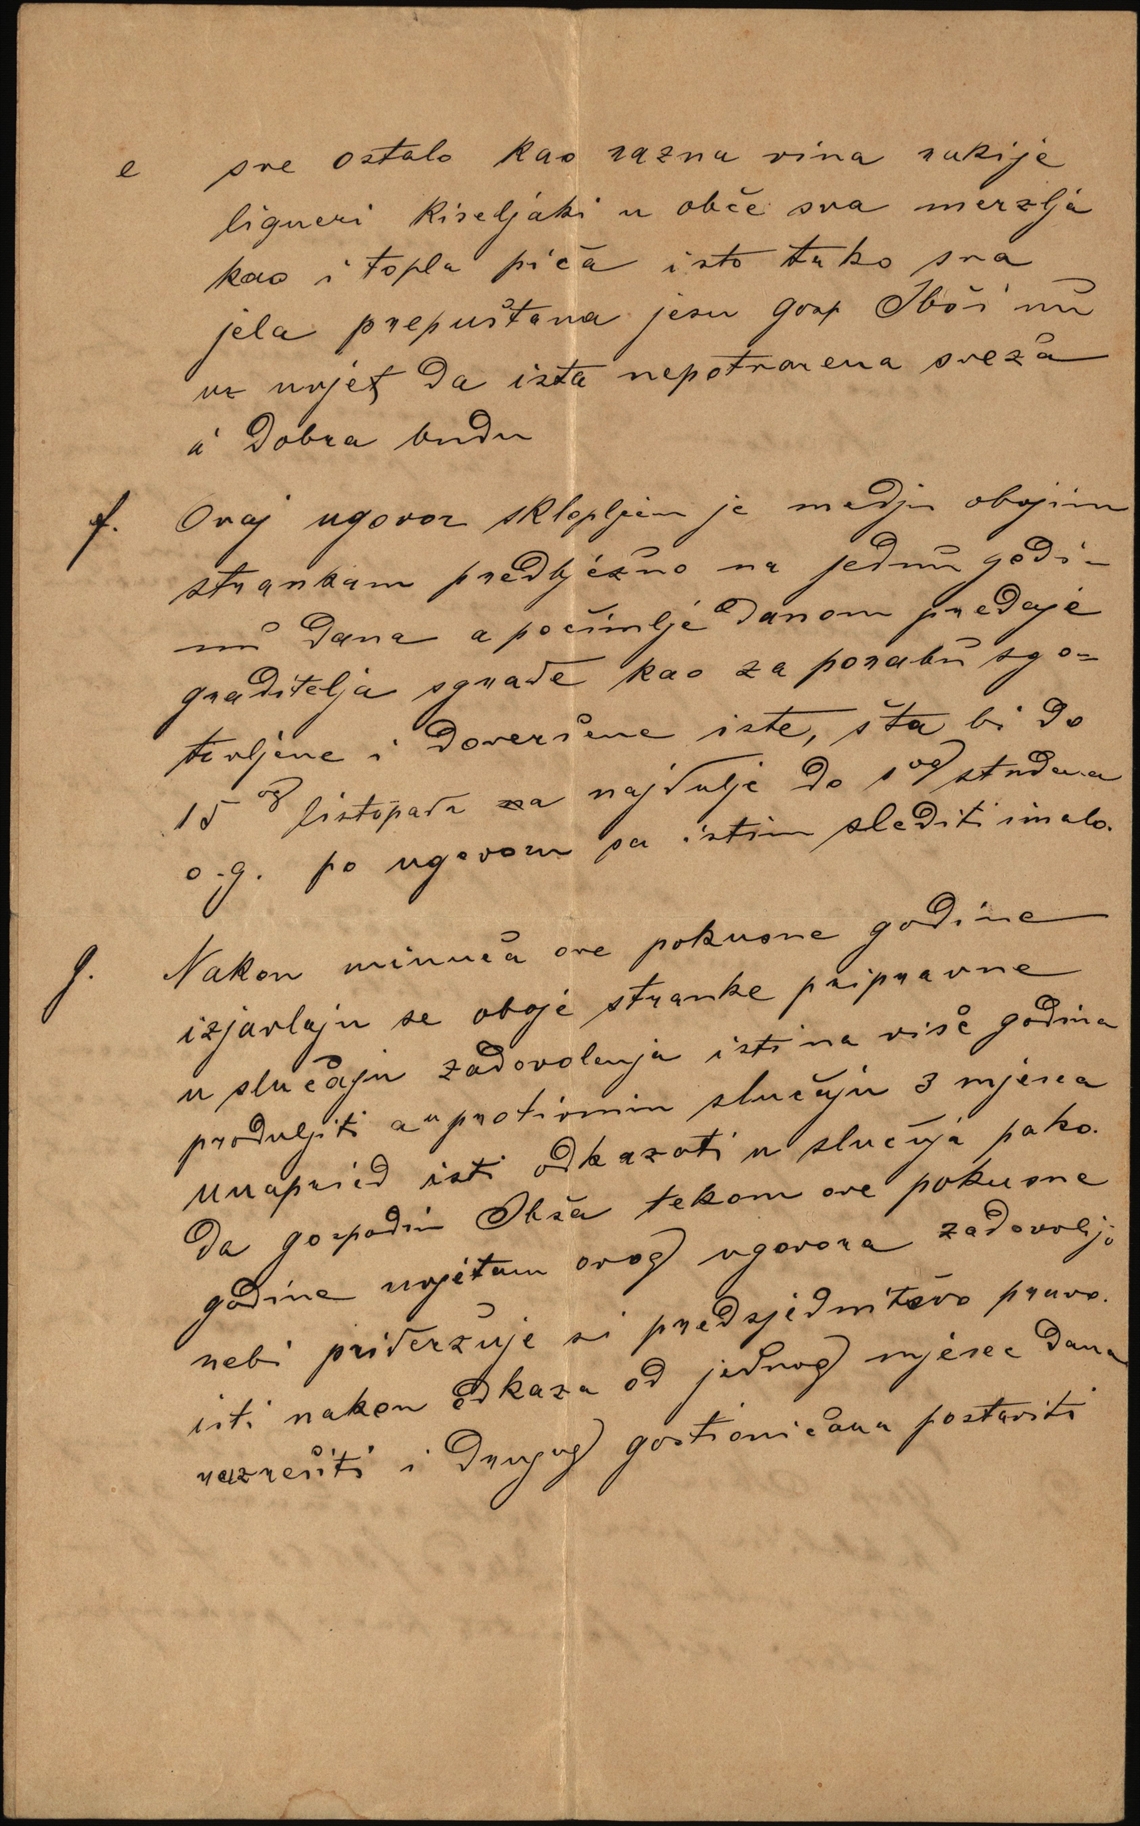 e sve ostalo kao razna vina rakije
liqueri kiseljaki u obče sva merzlja
kao i topla pića isto tako sva
jela prepuštana jesu gosp Ibši nu
uz uvjet da ista nepotvorena sveža
i dobra budu
f. Ovaj ugovor sklopljen je medju obojim
strankam predbježno na jednu godi-
nu dana a počimlje danom predaje
graditelja sgrade kao za porabu sgo-
tovljene i doveršene iste, šta bi do
15 og listopada za najdulje do 1og studena
o.g. po ugovoru sa istim slediti imalo.
g. Nakon minuća ove pokusne godine
izjavlaju se oboje stranke pripravne
u slučaju zadovolenja isti na više godina
produljiti a u protivnim slučaju 3 mjeseca
unapried isti odkazati u slučaja pako.
da gospodin Ibša tekom ove pokusne
godine uvjetam ovog ugovora zadovoljio
nebi priderzuje si predsjedničtvo pravo.
isti nakon odkaza od jednog mjesec dana
razrešiti i drugog gostioničara postaviti